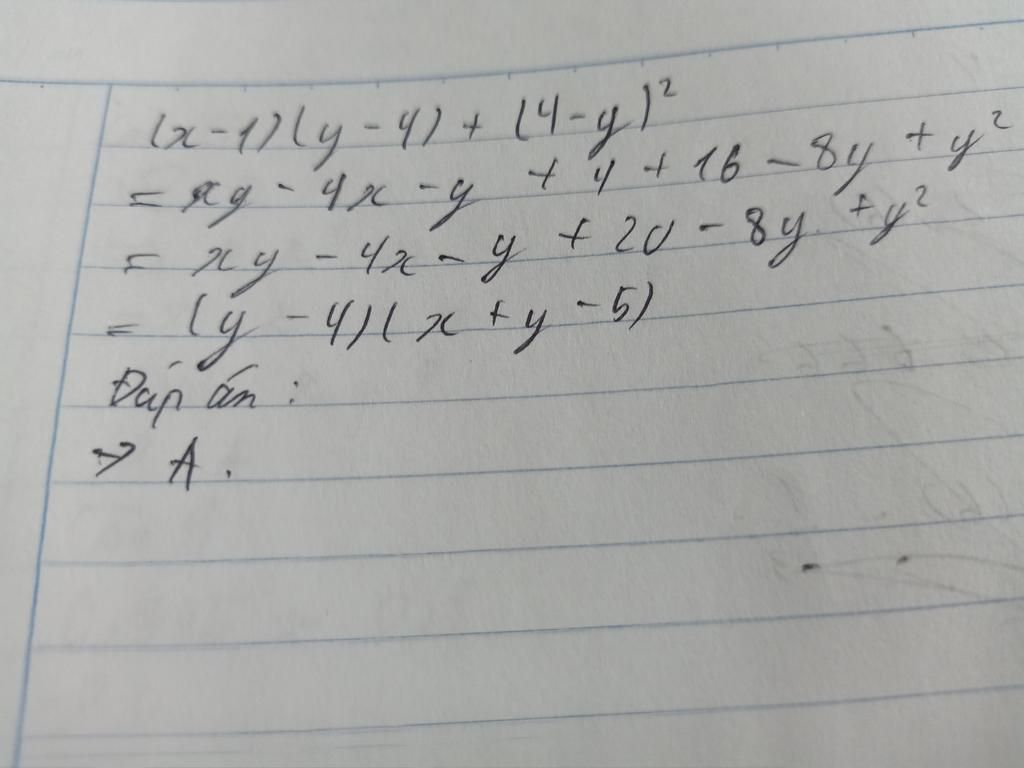 (x-1)(y-4)+(4-y)²
= xy - 4x - y + 4 + 16 - 8y + y²
= xy - 4x - y + 20 - 8y + y²
= (y - 4)(x + y - 5)
Đáp án :
→ A.